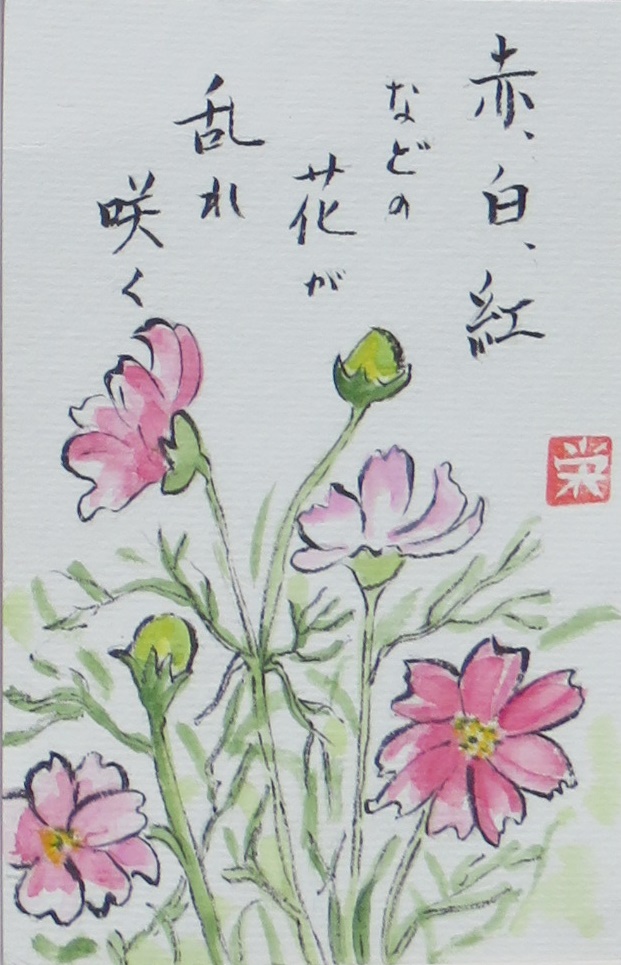 赤、白、紅
などの
花が
乱れ
咲く
栄